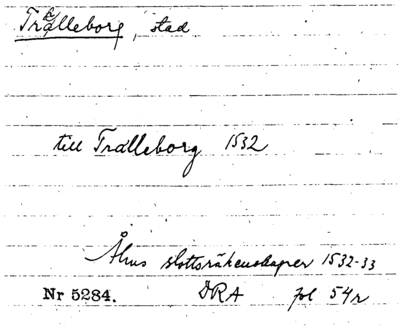 Trälleborg, stad
till Tralleborg 1532
Åhus slottsräkenskaper 1532-33
Nr 5284. DRA fol 54r